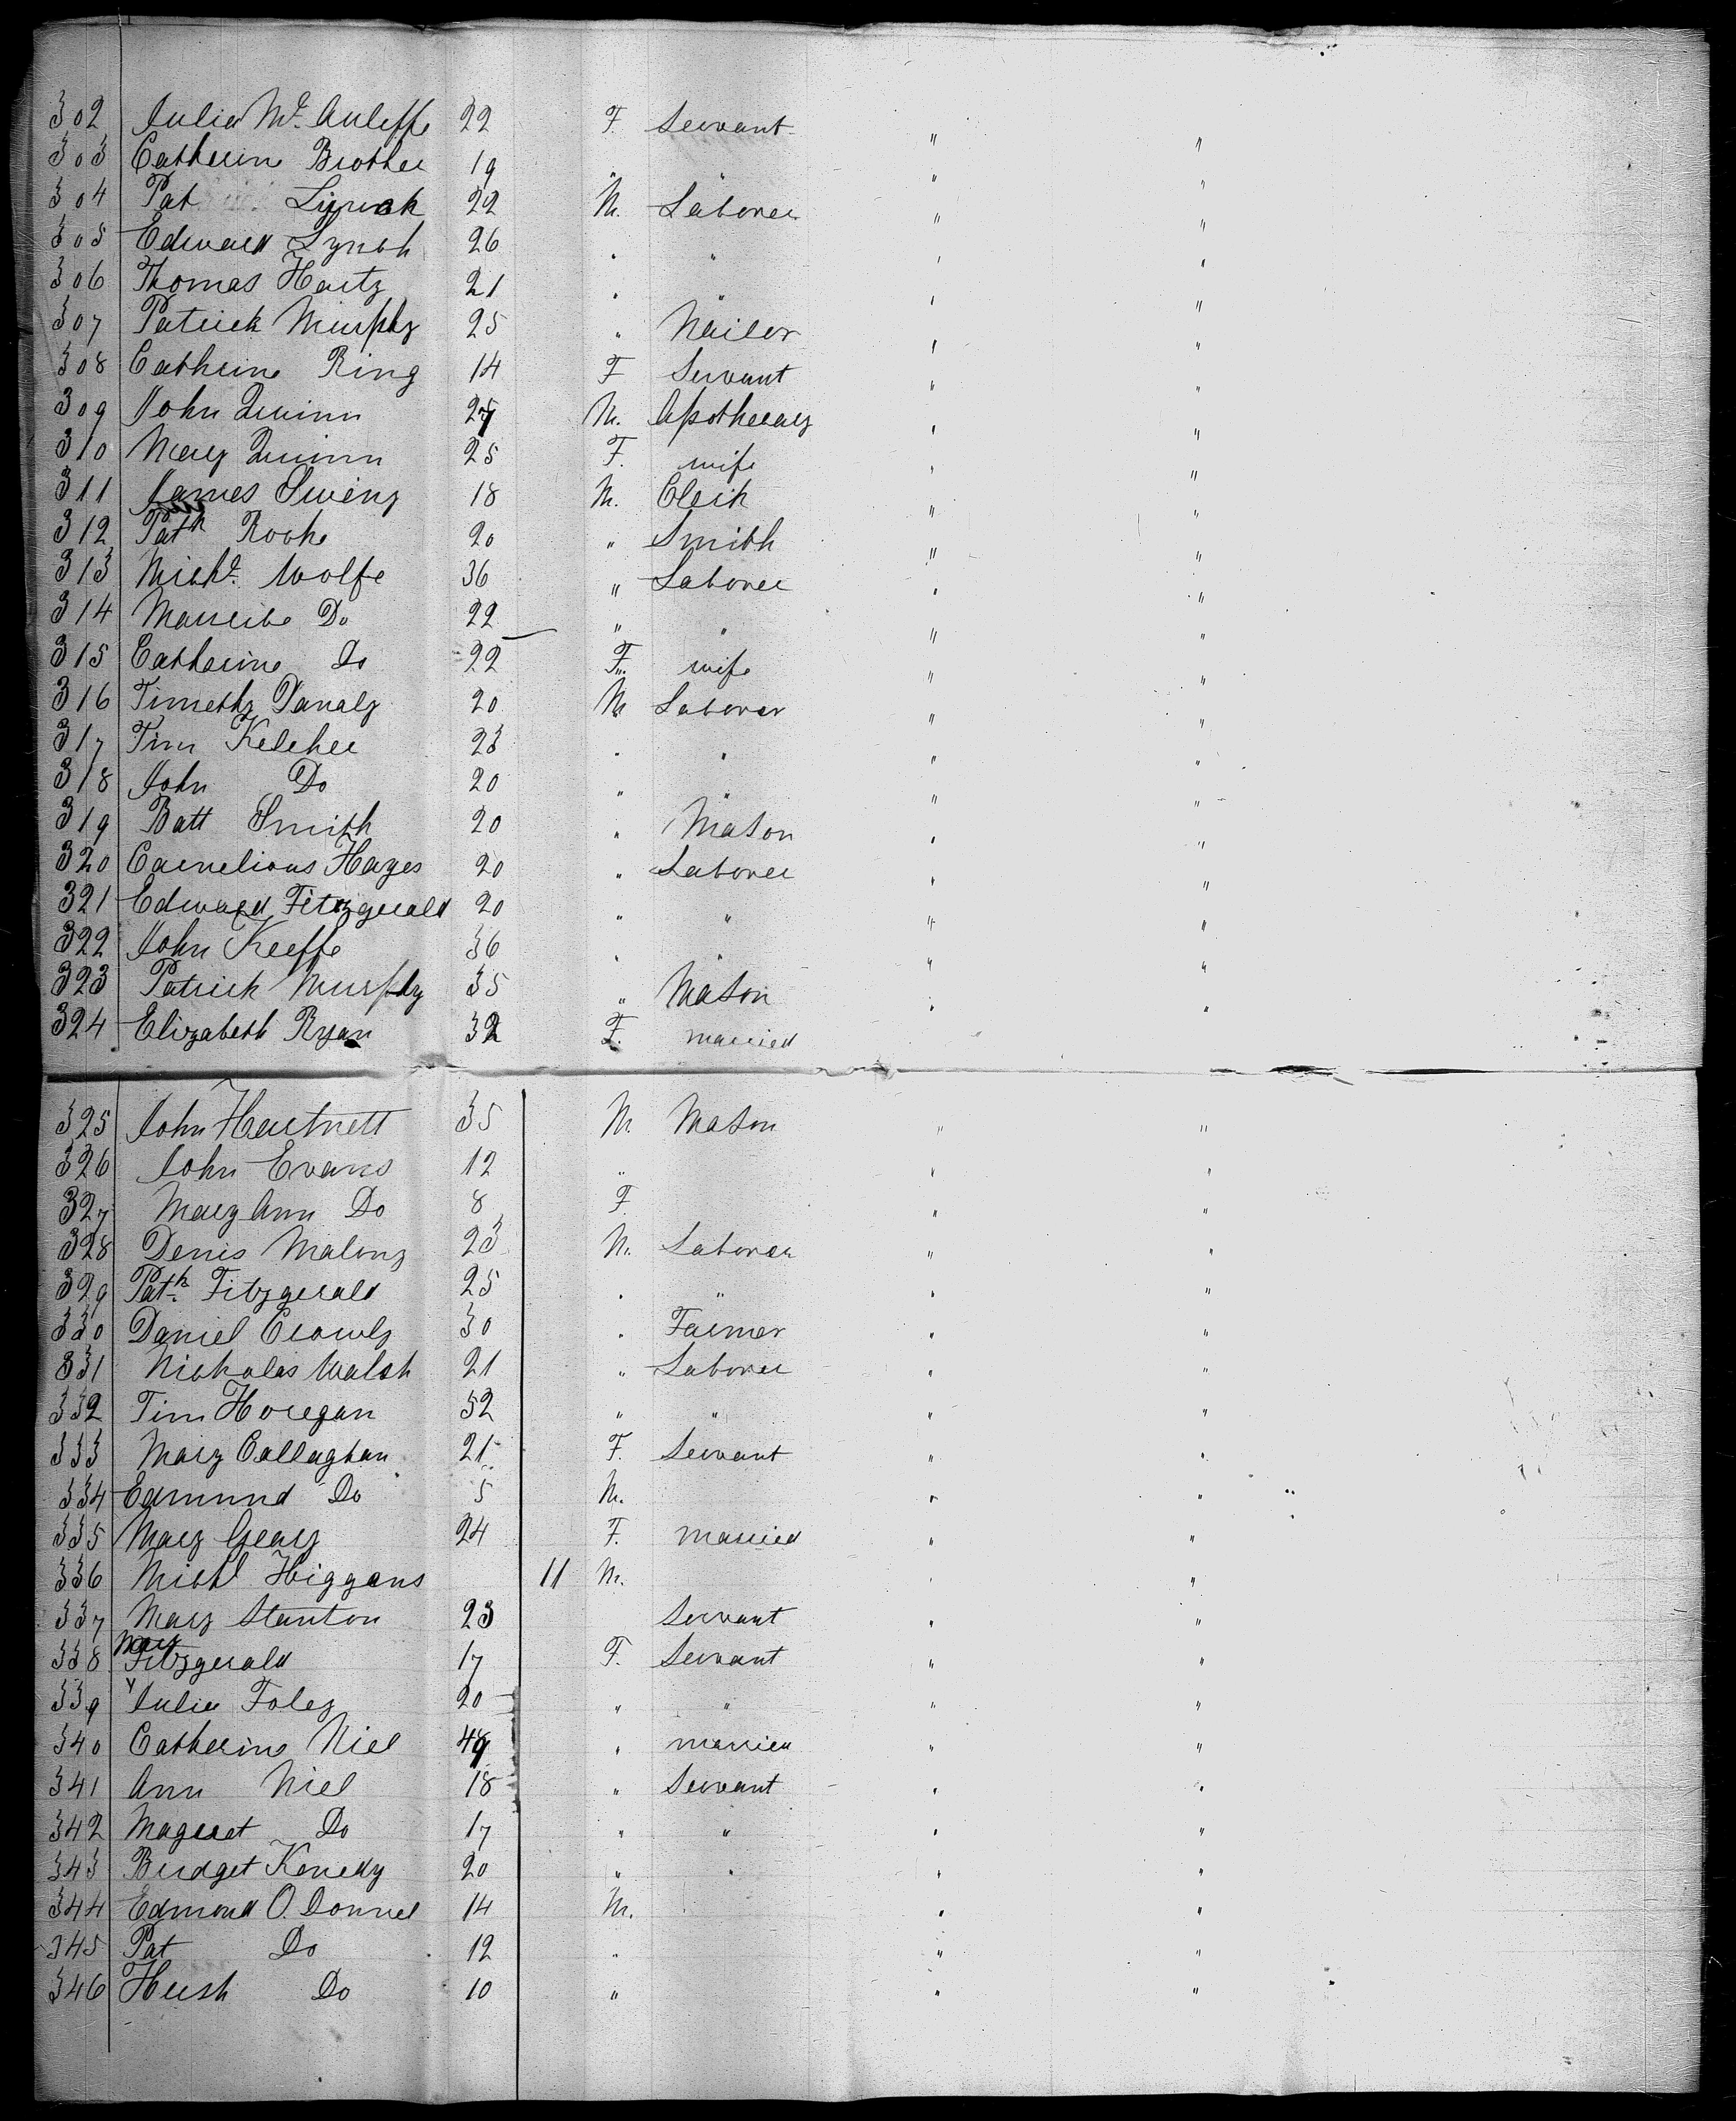 302 Julia Mc. Auleffe 22 F. Servant " "
303 Catherine Brother 19 " " " "
304 Pat Lynch 22 M. Laborer " "
305 Edward Lynch 26 " " " "
306 Thomas Harty 21 " " " "
307 Patrick Murphy 25 " Nailor " "
308 Cathrine Ring 14 F Servant " "
309 John Quinn 27 M. Apothecary " "
310 Mary Quinn 25 F. wife " "
311 James Sweny 18 M. Clerk " "
312 Patk Roche 20 " Smith " "
313 Michl. Wolfe 36 " Laborer " "
314 Maurice Do 22 " " " "
315 Catherine Do 22 F. wife " "
316 Timothy Danaly 20 M Laborer " "
317 Tim Keleher 23 " " " "
318 John Do 20 " " " "
319 Batt Smith 20 " Mason " "
320 Cornelious Hayes 20 " Laborer " "
321 Edward Fitzgerald 20 " " " "
322 John Keeffe 36 " " " "
323 Patrick Murphy 35 " Mason " "
324 Elizabeth Ryan 32 F. married " "
325 John Hartnett 35 M. Mason " "
326 John Evans 12 " " "
327 Mary Ann Do 8 F " "
328 Denis Malony 23 M. Laborer " "
329 Patk. Fitzgerald 25 " " " "
330 Daniel Crowly 30 " Farmer " "
331 Nicholas Walsh 21 " Laborer " "
332 Tim Horegan 52 " " " "
333 Mary Callaghan 21 F. Servant " "
334 Edmund Do 5 M. " "
335 Mary Geary 24 F. married " "
336 Michl Higgans 11 M. " "
337 Mary Stanton 23 Servant " "
338 Mary Fitzgerald 17 F. Servant " "
339 Julia Foley 20 " " " "
340 Catherine Niel 49 " married " "
341 Ann Niel 18 " Servant " "
342 Magaret Do 17 " " " "
343 Bridget Kenedy 20 " " " "
344 Edmond O. Donnel 14 M. " "
345 Pat Do 12 " " "
346 Hush Do 10 " " "